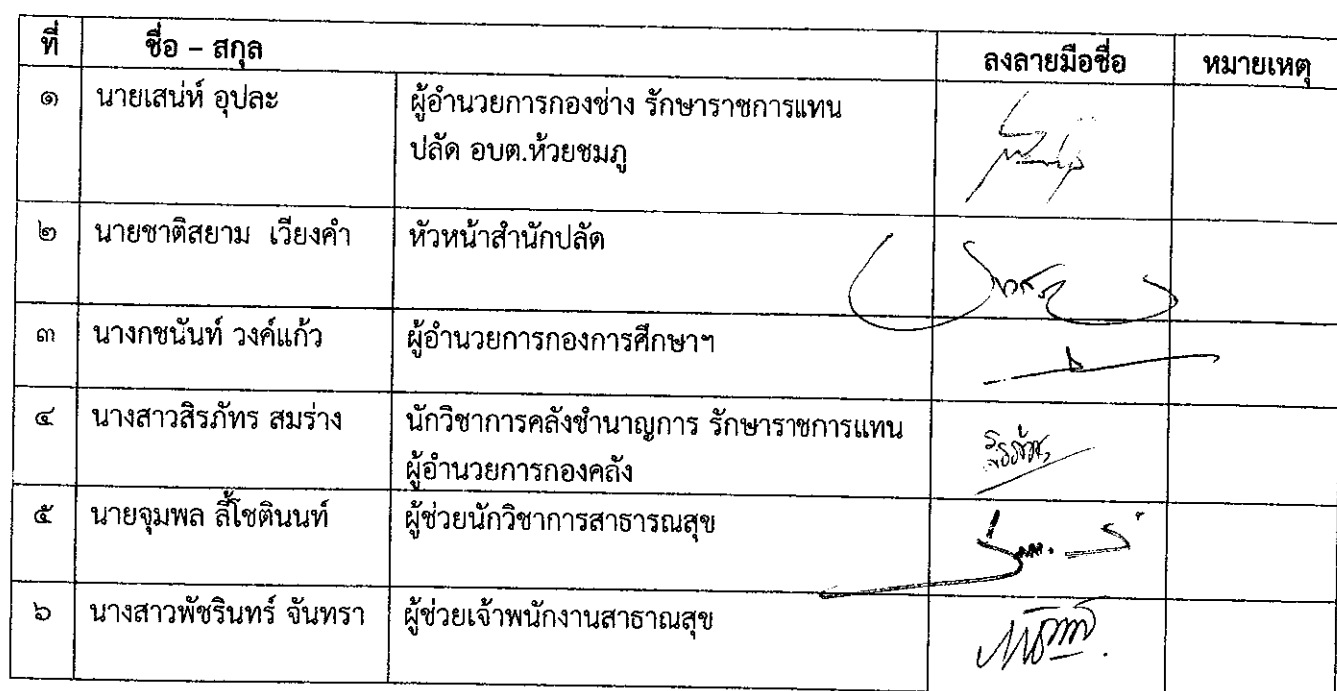 ที่ ชื่อ – สกุล ลงลายมือชื่อ หมายเหตุ
๑ นายเสน่ห์ อุปละ ผู้อำนวยการกองช่าง รักษาราชการแทน
ปลัด อบต.ห้วยชมภู
๒ นายชาติสยาม เวียงคำ หัวหน้าสำนักปลัด
๓ นางกชนันท์ วงค์แก้ว ผู้อำนวยการกองการศึกษาฯ
๔ นางสาวสิรภัทร สมร่าง นักวิชาการคลังชำนาญการ รักษาราชการแทน
ผู้อำนวยการกองคลัง
๕ นายจุมพล ลี้โชตินนท์ ผู้ช่วยนักวิชาการสาธารณสุข
๖ นางสาวพัชรินทร์ จันทรา ผู้ช่วยเจ้าพนักงานสาธาณสุข